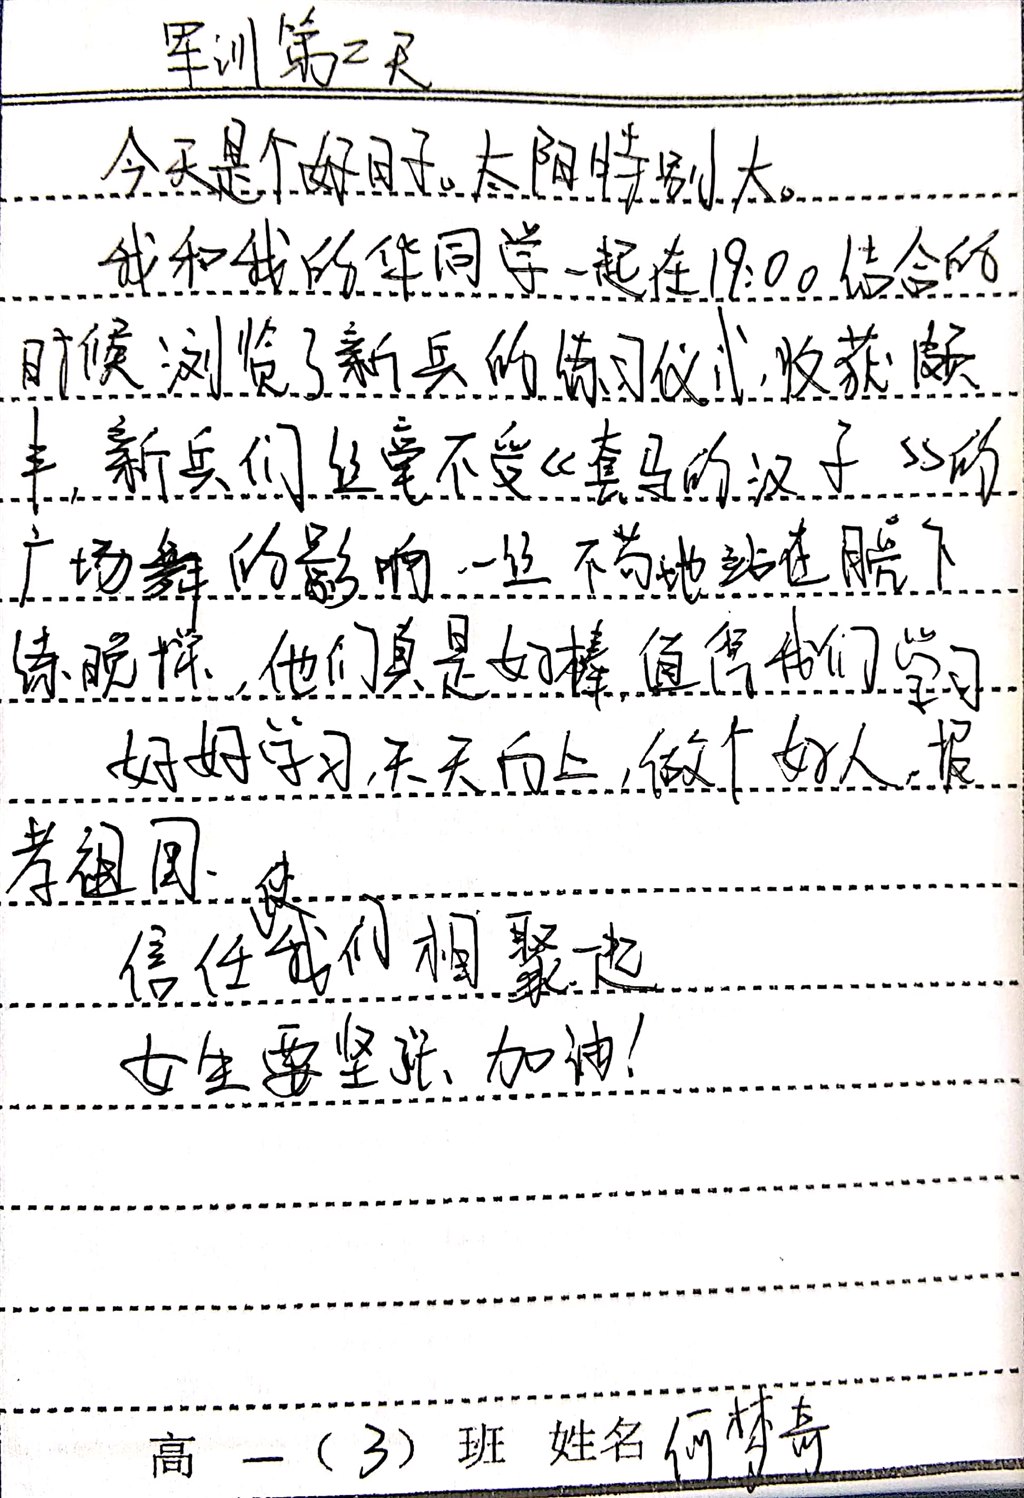 军训第二天
今天是个好日子。太阳特别大。
我和我的华同学一起在19:00结合的
时候浏览了新兵的练习仪式,收获颇
丰,新兵们丝毫不受《套马的汉子》的
广场舞的影响.一丝不苟地站在 下
练晚 ,他们真是好棒.值得我们学习
好好学习,天天向上,做个好人,报
孝祖国.
信任使我们相聚一起
女生要坚张、加油!
高一(3)班 姓名 何梦奇